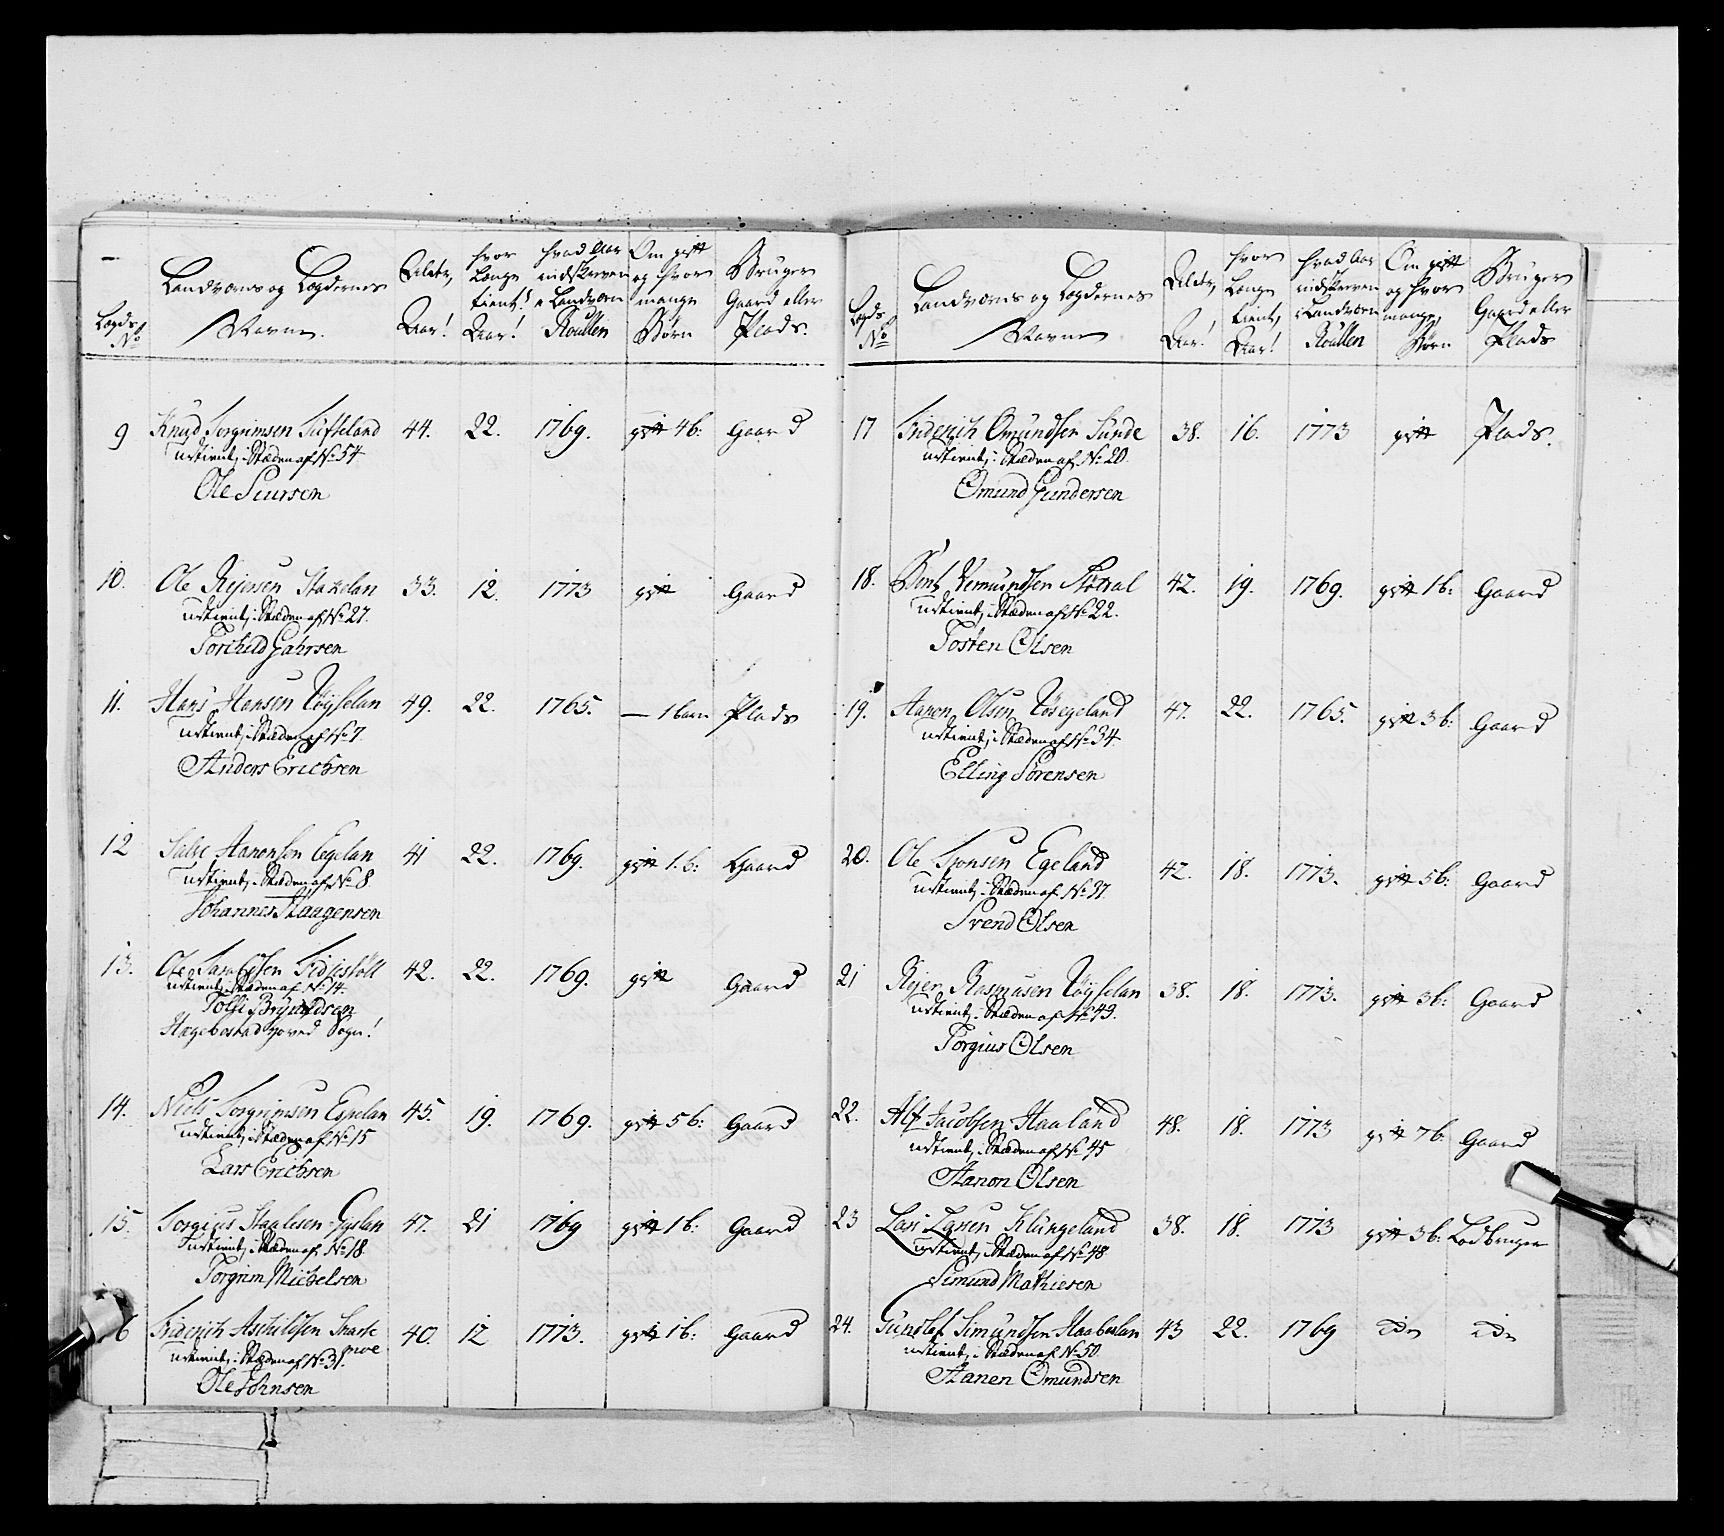 Lægds No
Landværns og Lægdernes Navne.
Alder, Aar!
hvor Længe tient! Aar!
hvad Aar indskreven i Landværn Roullen
Om gift og hvor mange Børn
Bruger Gaard eller Plads.
9 Knud Torgrimsen Tufteland 44. 22. 1769. gift 4b: Gaard
udtient i Stæden af No 54
Ole Siursen
10. Ole Rejersen Stakelan 33. 12. 1773 gift Gaard
udtient i Stæden af No 27.
Torkild Gahrsen
11. Hans Hansen Røyselan 49. 22. 1765. — 1 barn Plads
udtient i Stæden af No 7.
Anders Erichsen
12 Salve Aanonsen Egelan 41 22. 1769. gift 1.b: Gaard
udtient i Stæden af No 8
Johannes Haagensen
13. Ole Jacobsen Fidjestøll 42. 22. 1769. gift Gaard
udtient i Stæden af No 14.
Tolli Bryndsen
Hægebostad hoved Sogn!
14. Niels Torgrimsen Espelan 45. 19. 1769. gift 5b: Gaard
udtient i Stæden af No 15
Lars Erichsen
15. Torgius Staalesen Gyslan 47. 21 1769 gift 1b: Gaard
udtient i Stæden af No 18
Torgrim Michelsen
16 Friderich Aschildsen Snartemoe 40. 12 1773. gift 1b: Gaard
udtient i Stæden af No 31.
Ole Johnsen
Lægds No
Landværns og Lægdernes Navne
Alder, Aar!
hvor Længe tient, Aar!
hvad Aar indskreven i Landværn Roullen
Om gift og hvor mange Børn
Bruger Gaard eller Plads
17 Friderich Omundsen Sunde 38. 16. 1773 gift Plads.
udtient i Stæden af No 20.
Omund Gundersen
18. Bent Vemundsen 42. 19. 1769. gift 1b: Gaard
udtient i Stæden af No 22.
Tosten Olsen
19. Aanon Olsen 47. 22. 1765. gift 3b: Gaard
udtient i Stæden af No 34
Elling Sørensen
20. Ole Tionsen Egeland 42. 18. 1773. gift 5b: Gaard
udtient i Stæden af No 37.
Svend Olsen
21 Rejer Rasmusen Røyselan 38. 18. 1773. gift 3b: Gaard
udtient i Stæden af No 43.
Torgius Olsen
22. Alf Jacobsen Haaland 48. 18. 1773 gift 7b: Gaard
udtient i Stæden af No 45
Aanon Olsen
23 Lars Larsen Klungeland 38. 18. 1773 gift 3b: Lodbruger
udtient i Stæden af No 48
Simund Mathiesen
24. Gunolf Simundsen Haabeslan 43 22. 1769
udtient i Stæden af No 50.
Aanen Omundsen